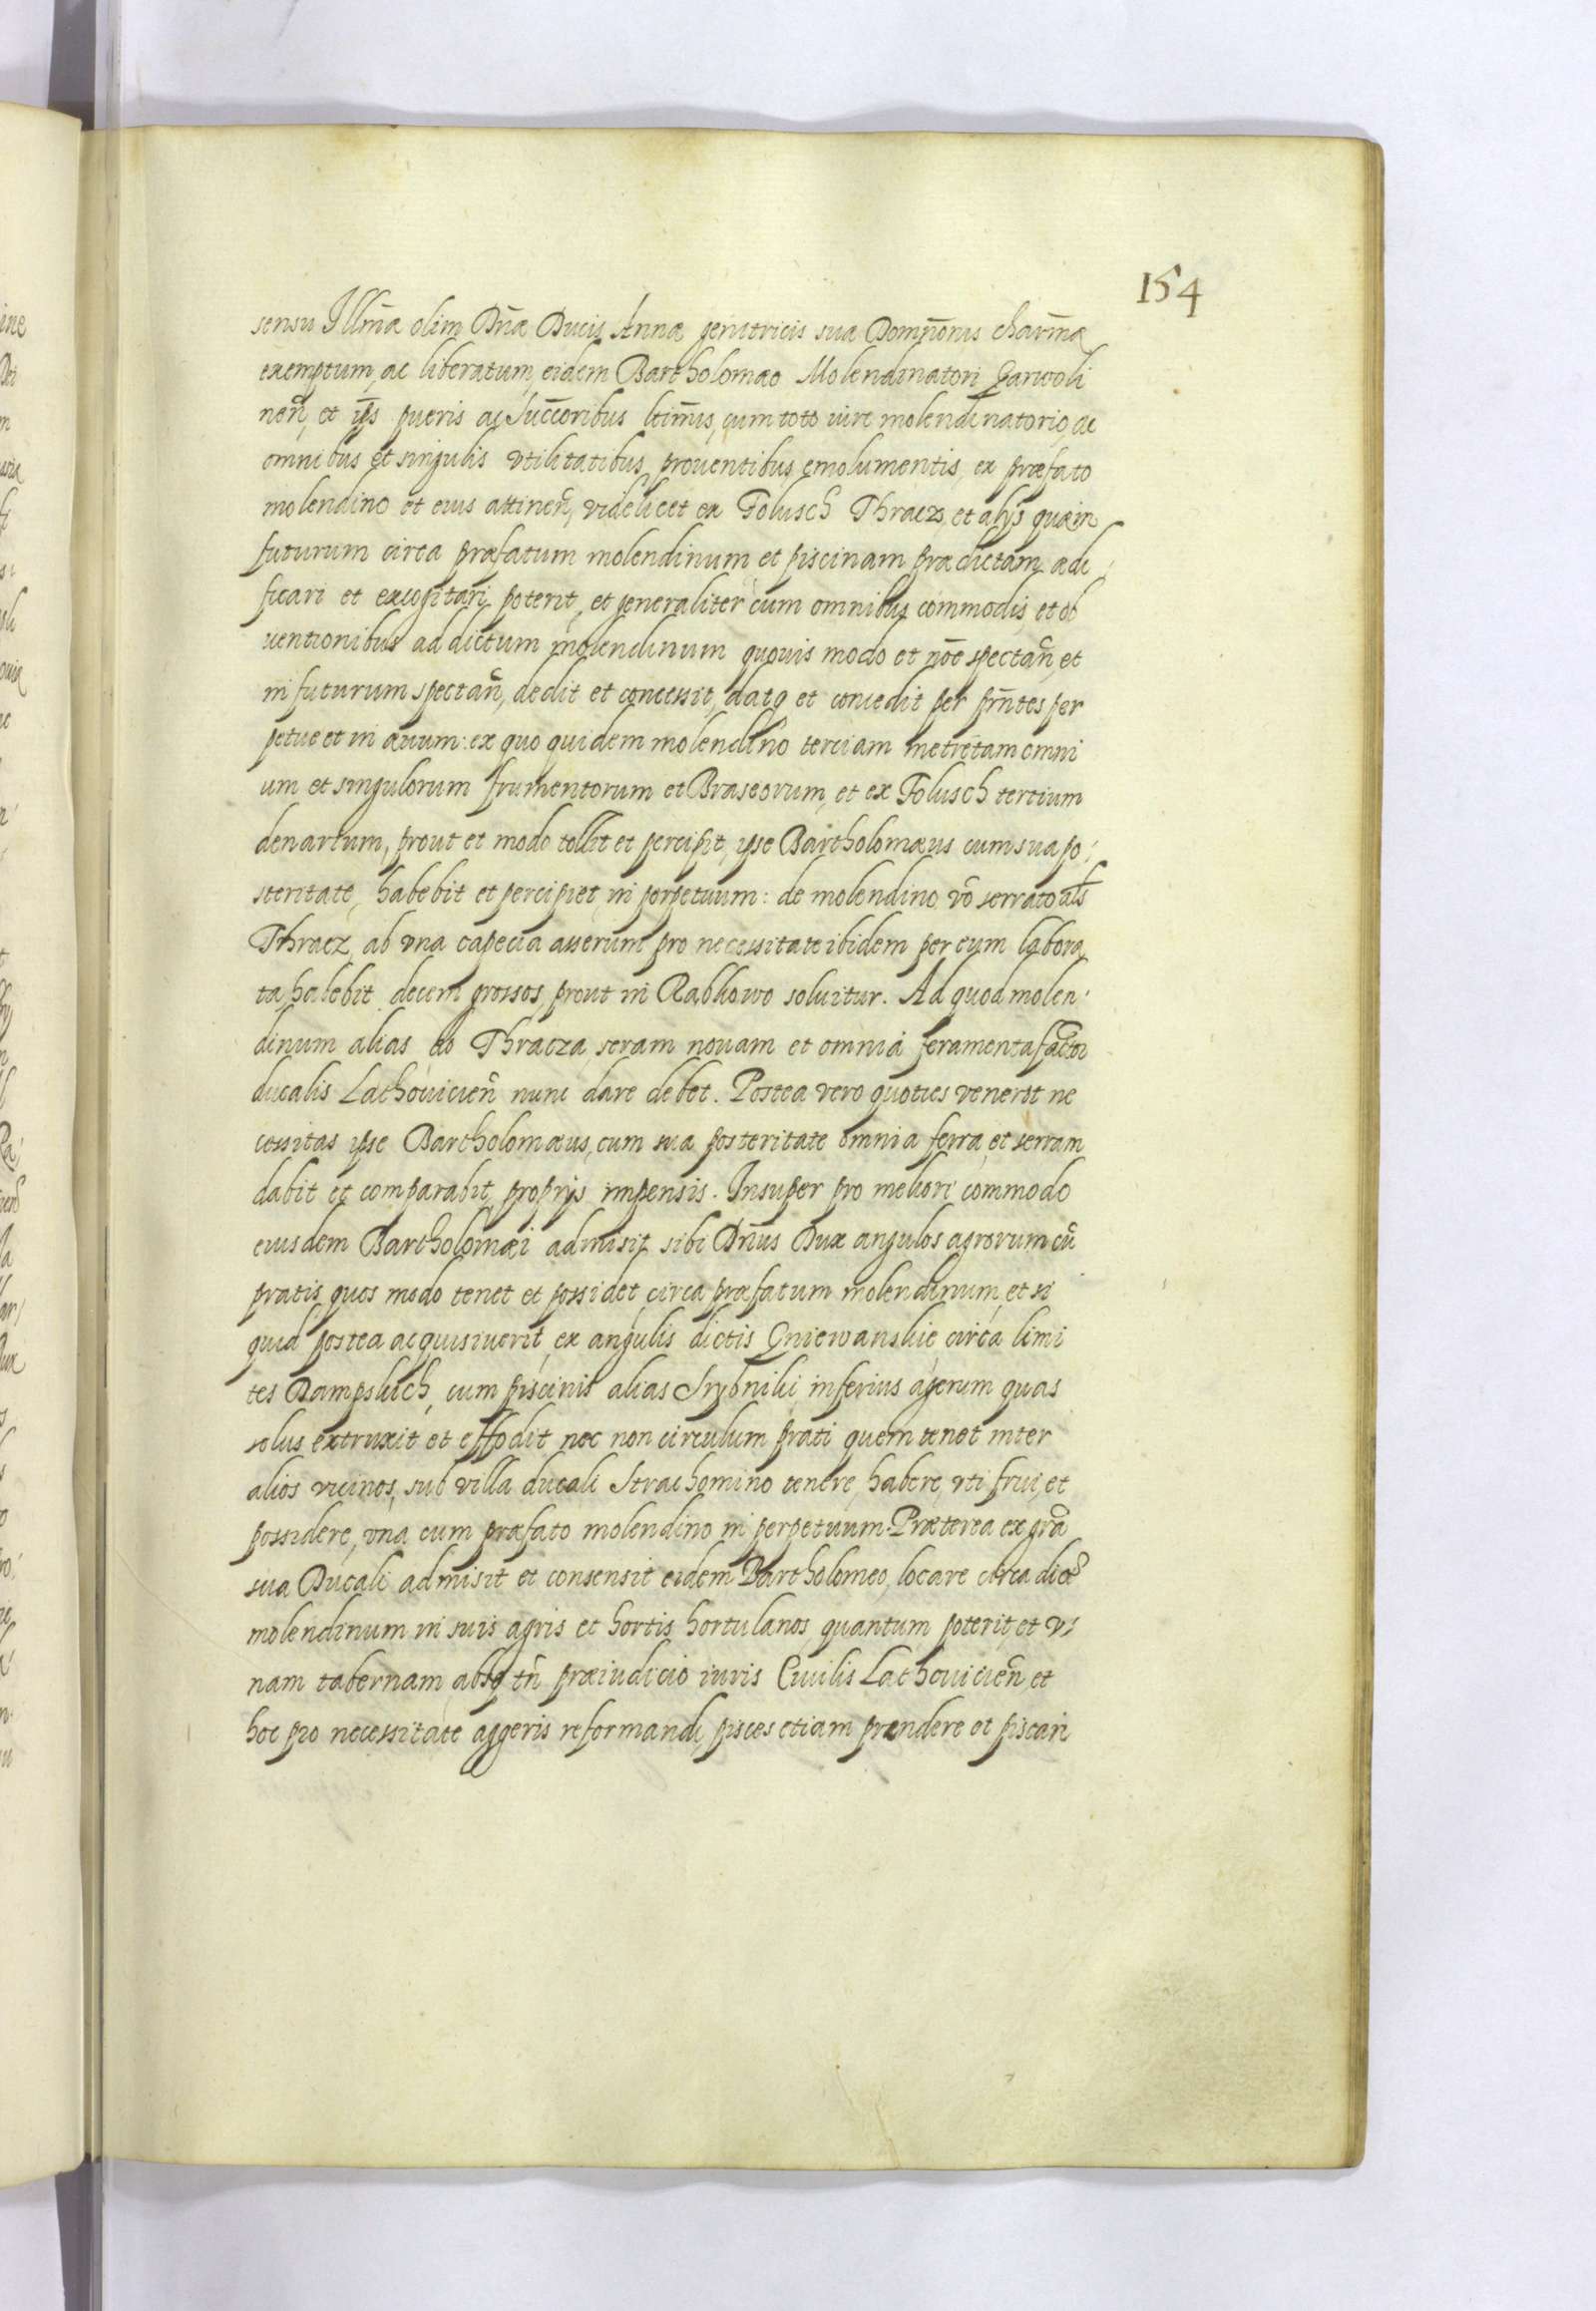 154
sensu Illm̃æ olim Dñæ Ducis Annæ genitricis sua Domñonis charm̃æ
exemptum, ac liberatum, eidem Bartholomæo Molendinatori Garwoli
neñ, et ip̃s pueris ac Succ̃oribus ltim̃is, cum toto iure molendinatorio, ac
omnibus et singulis vtilitatibus, prouentibus, emolumentis, ex præfato
molendino et eius attineñ, videlicet ex Folusch Thracz, et alijs quæ in
futurum circa præfatum molendinum et piscinam prædictam ædi
ficari et excogitari poterit, et generaliter cum omnibus commodis, et ob
uentionibus ad dictum molendinum quouis modo et nõe spectañ, et
in futurum spectañ, dedit et concessit, datq et concedit per pñtes per
petue et in æuum: ex quo quidem molendino terciam metretam omni
um et singulorum frumentorum et Braseorum, et ex Folusch tertium
denarium, prout et modo tollit et percipit, ipse Bartholomæus cum sua po
steritate, habebit et percipiet in perpetuum: de molendino võ serrato als
Thracz, ab vna capecia asserum pro necessitate ibidem per eum labora
ta habebit decem grossos, prout in Rabkowo soluitur. Ad quod molen
dinum alias do Thracza, seram nouam et omnia feramenta factor
ducalis Lathouicieñ nunc dare debet. Postea vero quoties venerit ne
cessitas ipse Bartholomæus, cum sua posteritate omnia ferra, et serram
dabit et comparabit, proprijs impensis. Insuper pro meliori commodo
eiusdem Bartholomæi admisit sibi Dñus Dux angulos agrorum cũ
pratis, quos modo tenet et possidet, circa præfatum molendinum, et si
quid postea acquisiuerit, ex angulis dictis Gniewanskie circa limi
tes Dampskich, cum piscinis alias Srybniki inferius agerum quas
solus extruxit et effodit nec non circulum prati quem tenet inter
alios vicinos, sub villa ducali Strachomino tenere, habere, vti frui, et
possidere, vna cum præfato molendino in perpetuum. Præterea ex grã
sua Ducali admisit et consensit eidem Bartholomeo, locare circa dic̃
molendinum in suis agris et hortis, hortulanos, quantum poterit, et v
nam tabernam, absq tñ præiudicio iuris Ciuilis Lathouicieñ et
hoc pro necessitate aggeris reformandi, pisces etiam prendere et piscari